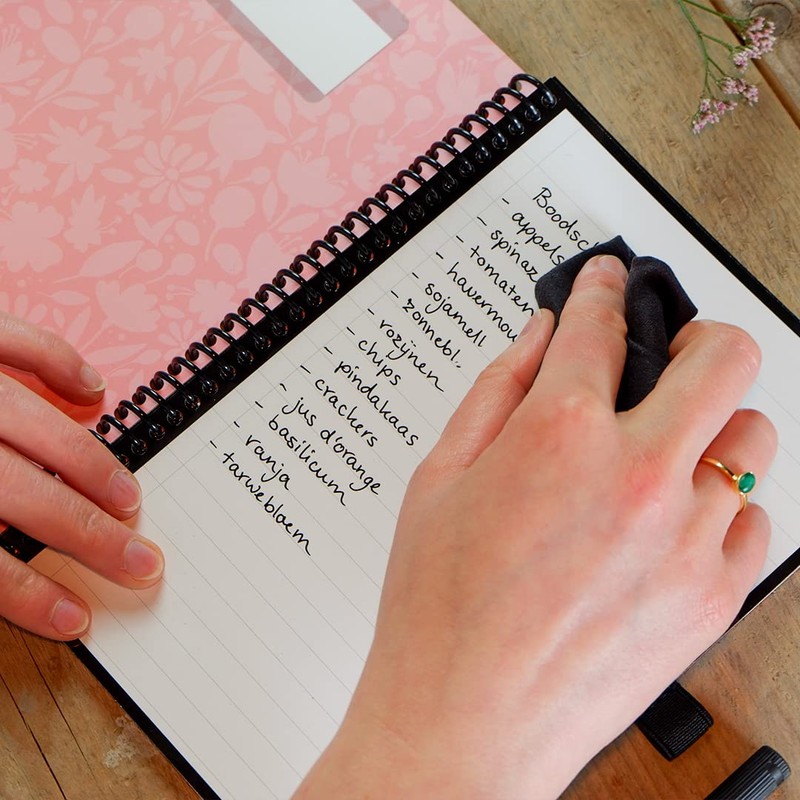 Boodsch
- appels
- spinaz
- tomaten
- havermou
- sojamell
- zonnebl..
- rozijnen
- chips
- pindakaas
- crackers
- jus d'orange
- basilicum
- vanja
- tarwebloem